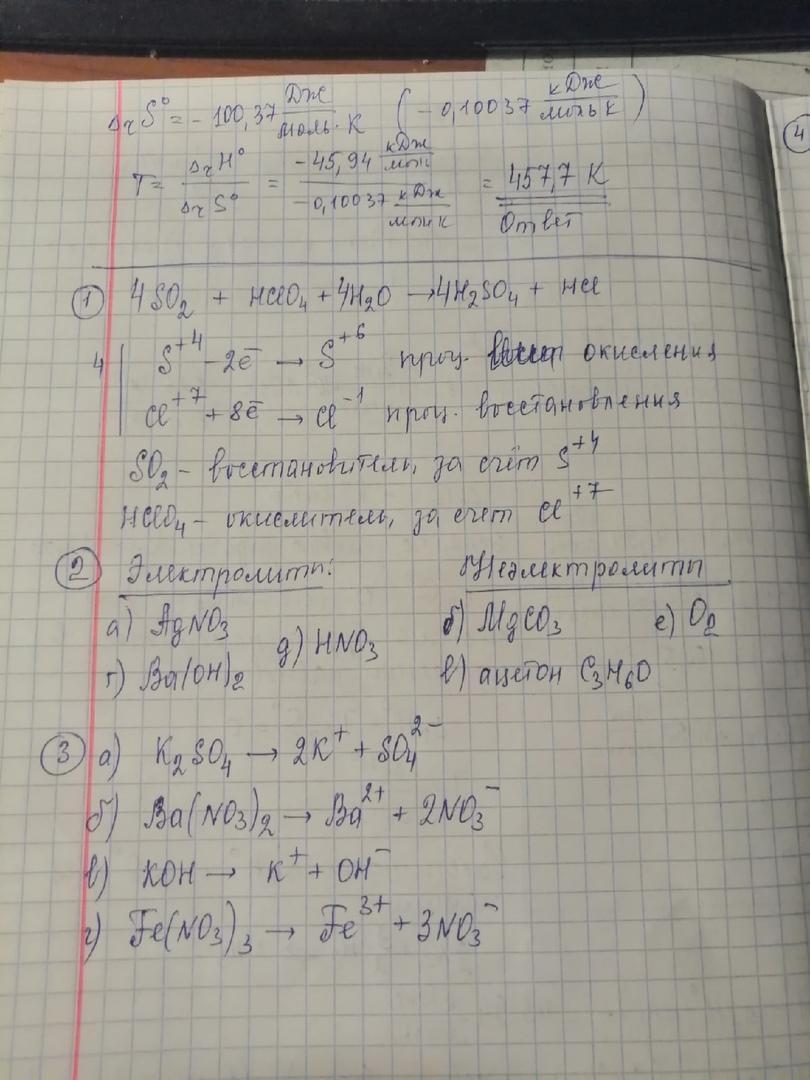 ΔrS° = -100,37 Дж/моль·К (-0,10037 кДж/моль К)
T = ΔrH°/ΔrS° = -45,94 кДж/моль / -0,10037 кДж/моль К = 457,7 К
Ответ
4
1 4SO₂ + HClO₄ + 4H₂O → 4H₂SO₄ + HCl
4 | S⁺⁴ - 2ē → S⁺⁶ проц. окисления
Cl⁺⁷ + 8ē → Cl⁻¹ проц. восстановления
SO₂ - восстановитель, за счёт S⁺⁴
HClO₄ - окислитель, за счет Cl⁺⁷
2 Электролиты: Неэлектролиты
а) AgNO₃ д) HNO₃ б) MgCO₃ е) O₂
г) Ba(OH)₂ в) ацетон C₃H₆O
3 а) K₂SO₄ → 2K⁺ + SO₄²⁻
б) Ba(NO₃)₂ → Ba²⁺ + 2NO₃⁻
в) KOH → K⁺ + OH⁻
г) Fe(NO₃)₃ → Fe³⁺ + 3NO₃⁻